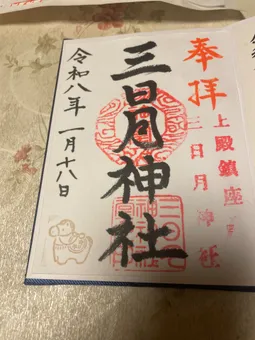 奉拝
上殿鎮座
三日月神社
三日月神社
令和八年 一月十八日